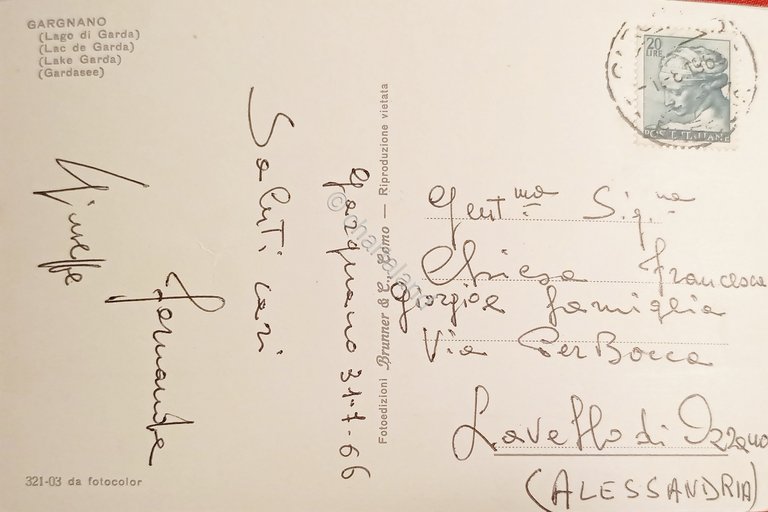 GARGNANO
(Lago di Garda)
(Lac de Garda)
(Lake Garda)
(Gardasee)
Saluti cari
Giuseppe
Fernanda
Gargnano 31-7-66
Fotoedizioni Brunner & C., Como — Riproduzione vietata
20
LIRE
POSTE ITALIANE
Gent.ma Sig.na
Chiesa Francesca
Giorgio e famiglia
Via Per Bocca
Lavello di Ozzano
(ALESSANDRIA)
321-03 da fotocolor